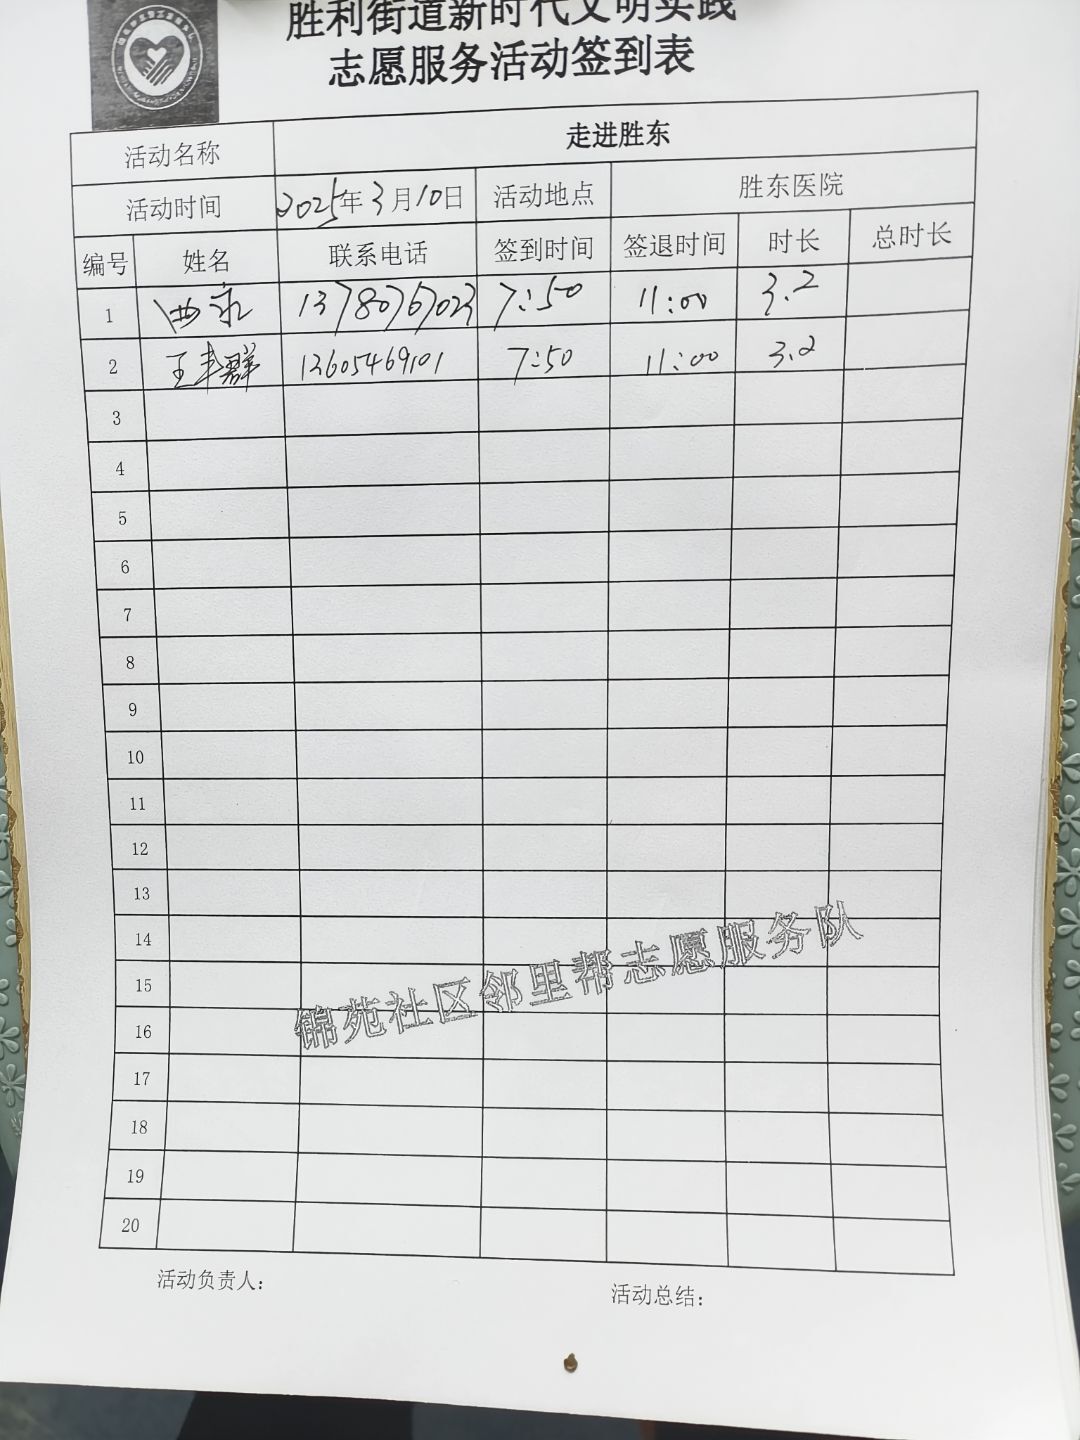 胜利街道新时代文明实践
志愿服务活动签到表
活动名称 走进胜东
活动时间 2025年3月10日 活动地点 胜东医院
编号 姓名 联系电话 签到时间 签退时间 时长 总时长
1 13780767023 7:50 11:00 3.2
2 王丰群 13605469101 7:50 11:00 3.2
3
4
5
6
7
8
9
10
11
12
13
14
15
16
17
18
19
20
锦苑社区邻里帮志愿服务队
活动负责人: 活动总结: